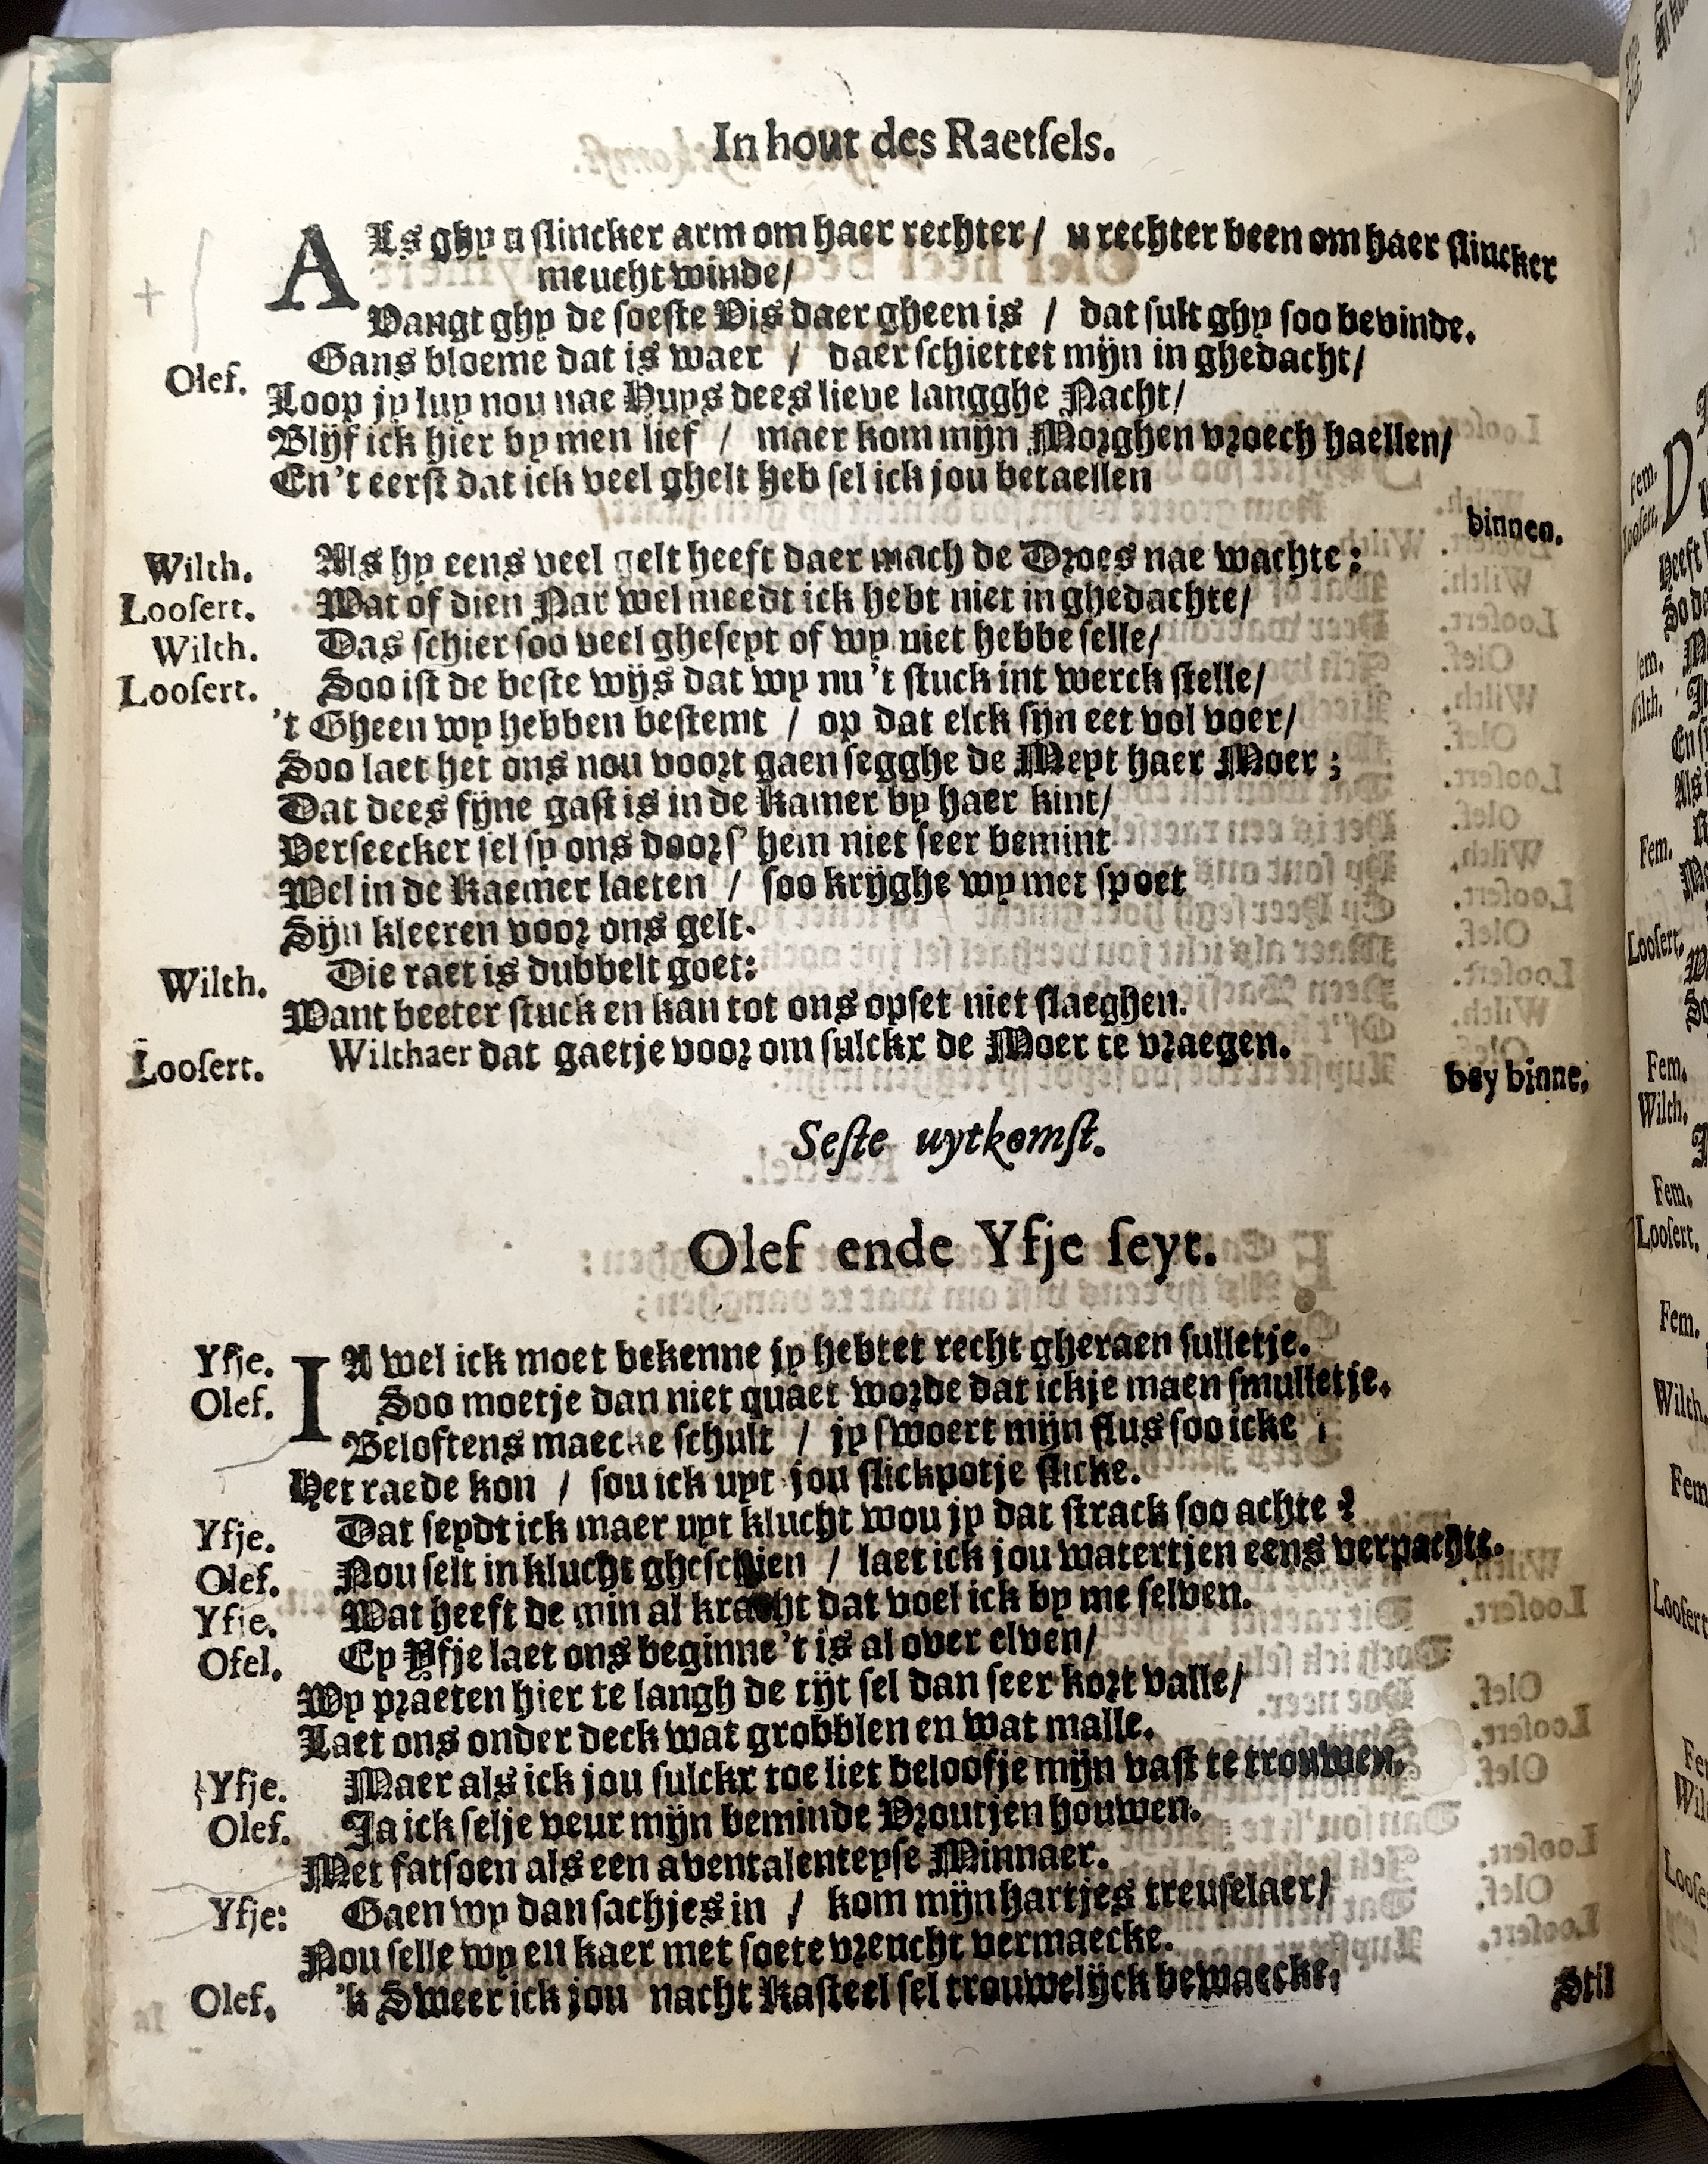 In hout des Raetsels.
ALs ghy u slincker arm om haer rechter / u rechter been om haer slincker
meucht winde /
Vangt ghy de soeste Vis daer gheen is / dat sult ghy soo bevinde.
Olef. Gans bloeme dat is waer / daer schiettet mijn in ghedacht /
Loop jy luy nou nae Huys dees lieve langghe Nacht /
Blijf ick hier by men lief / maer kom mijn Morghen vroech haellen /
En 't eerst dat ick veel ghelt heb sel ick jou betaellen
binnen.
Wilth. Als hy eens veel gelt heeft daer mach de Droes nae wachte :
Loosert. Wat of dien Nar wel meedt ick hebt niet in ghedachte /
Wilth. Das schier soo veel gheseyt of wy niet hebbe selle /
Loosert. Soo ist de beste wijs dat wy nu 't stuck int werck stelle /
't Gheen wy hebben bestemt / op dat elck sijn eet vol voer /
Soo laet het ons nou voort gaen segghe de Meyt haer Moer ;
Dat dees fijne gast is in de Kamer by haer kint /
Verseecker sel sy ons doors' hem niet seer bemint
Wel in de Kaemer laeten / soo krijghe wy met spoet
Sijn kleeren voor ons gelt.
Wilth. Die raet is dubbelt goet:
Want beeter stuck en kan tot ons opset niet slaeghen.
Loosert. Wilthaer dat gaetje voor om sulckx de Moer te vraegen.
bey binne.
Seste uytkomst.
Olef ende Yfje seyt.
Yfje. IA wel ick moet bekenne jy hebtet recht gheraen sulletje.
Olef. Soo moetje dan niet quaet worde dat ickje maen smulletje.
Beloftens maecke schult / jy swoert mijn flus soo icke
Het raede kon / sou ick uyt jou slickpotje slicke.
Yfje. Dat seydt ick maer uyt klucht wou jy dat strack soo achte ?
Olef. Nou selt in klucht gheschien / laet ick jou watertjen eens verpachte.
Yfje. Wat heeft de min al kracht dat voel ick by me selven.
Ofel. Ey Yfje laet ons beginne 't is al over elven /
Wy praeten hier te langh de tijt sel dan seer kort valle /
Laet ons onder deck wat grobblen en wat malle.
Yfje. Maer als ick jou sulckx toe liet beloofje mijn vast te trouwen.
Olef. Ja ick selje veur mijn beminde Vroutjen houwen.
Met fatsoen als een aventalenteyse Minnaer.
Yfje: Gaen wy dan sachjes in / kom mijn hartjes treuselaer /
Nou selle wy ell kaer met soete vreucht vermaecke.
Olef. 'k Sweer ick jou nacht Kasteel sel trouwelijck bewaecke,
Stil